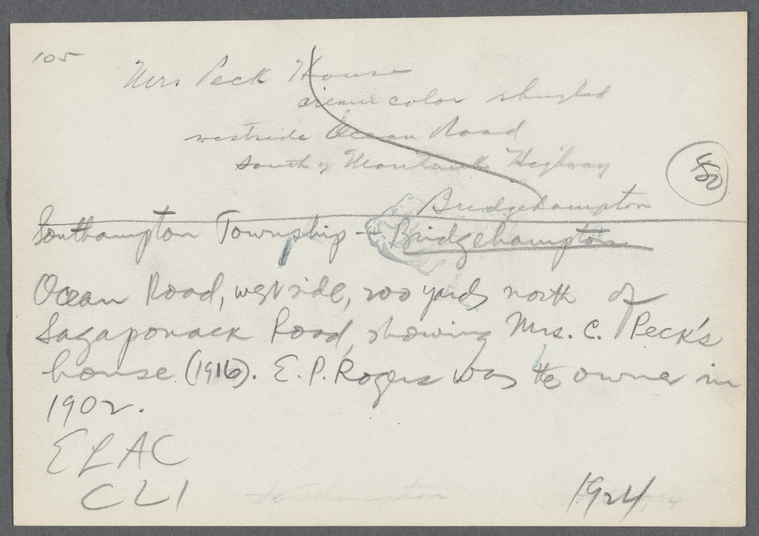 105
Mrs Peck House
cream color shingled
westside Ocean Road
South of Montauk Highway
Bridgehampton
50
Southampton Township - Bridgehampton
Ocean Road, west side, 200 yards north of
Sagaponack Road, showing Mrs. C. Peck's
house (1916). E. P. Rogers was the owner in
1902.
ELAC
CL1
Southampton
1924